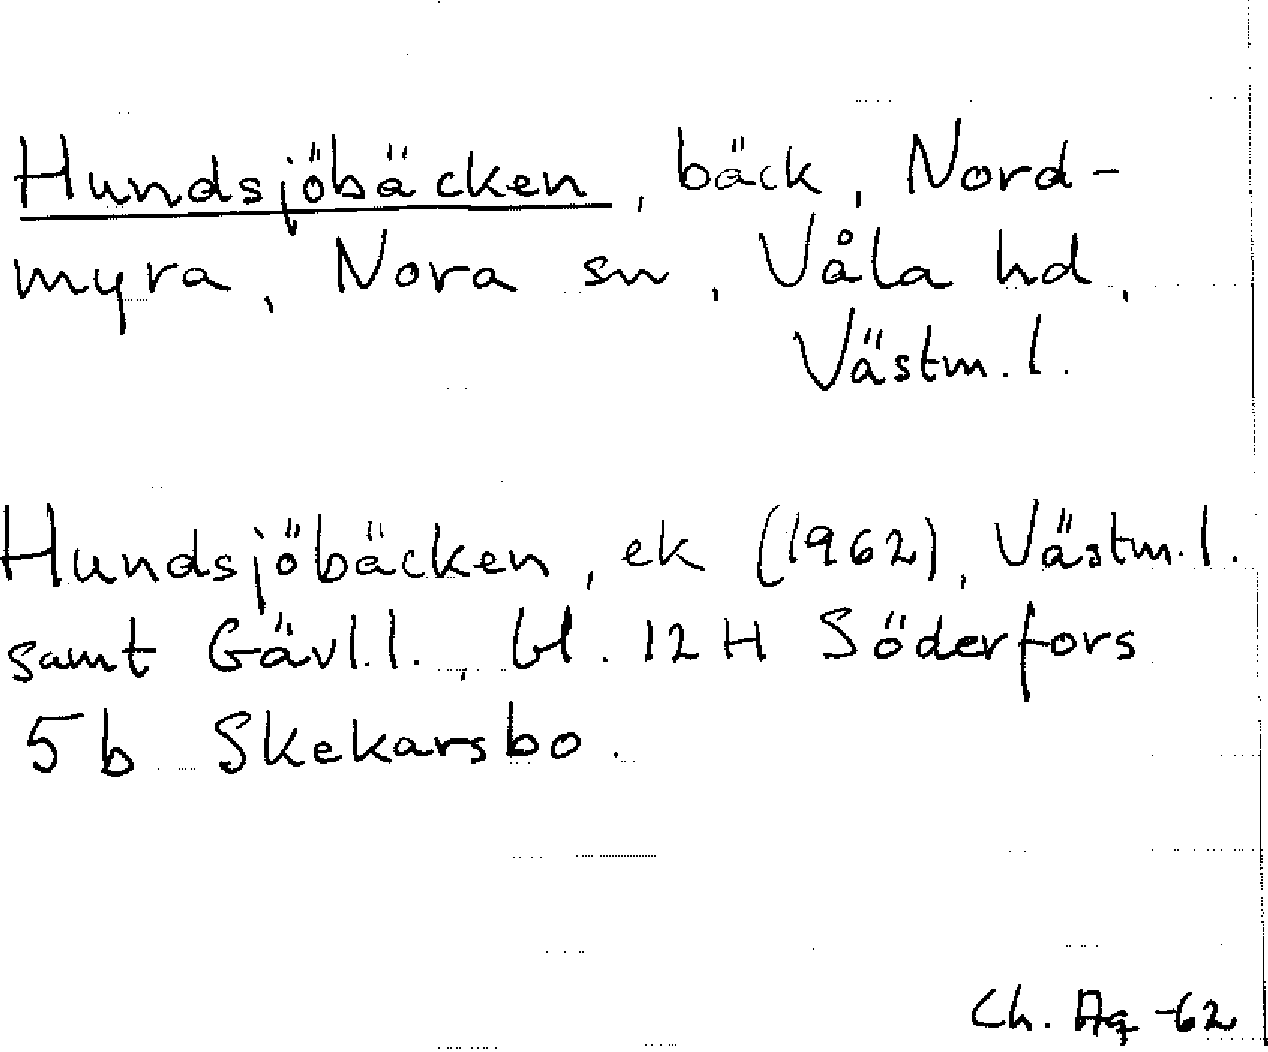 Hundsjöbäcken, bäck, Nord-
myra, Nora sn, Våla hd,
Västm. l.
Hundsjöbäcken, ek (1962), Västm. l.
samt Gävl. l., bl. 12 H Söderfors
5 b Skekarsbo.
Ch. Ag -62